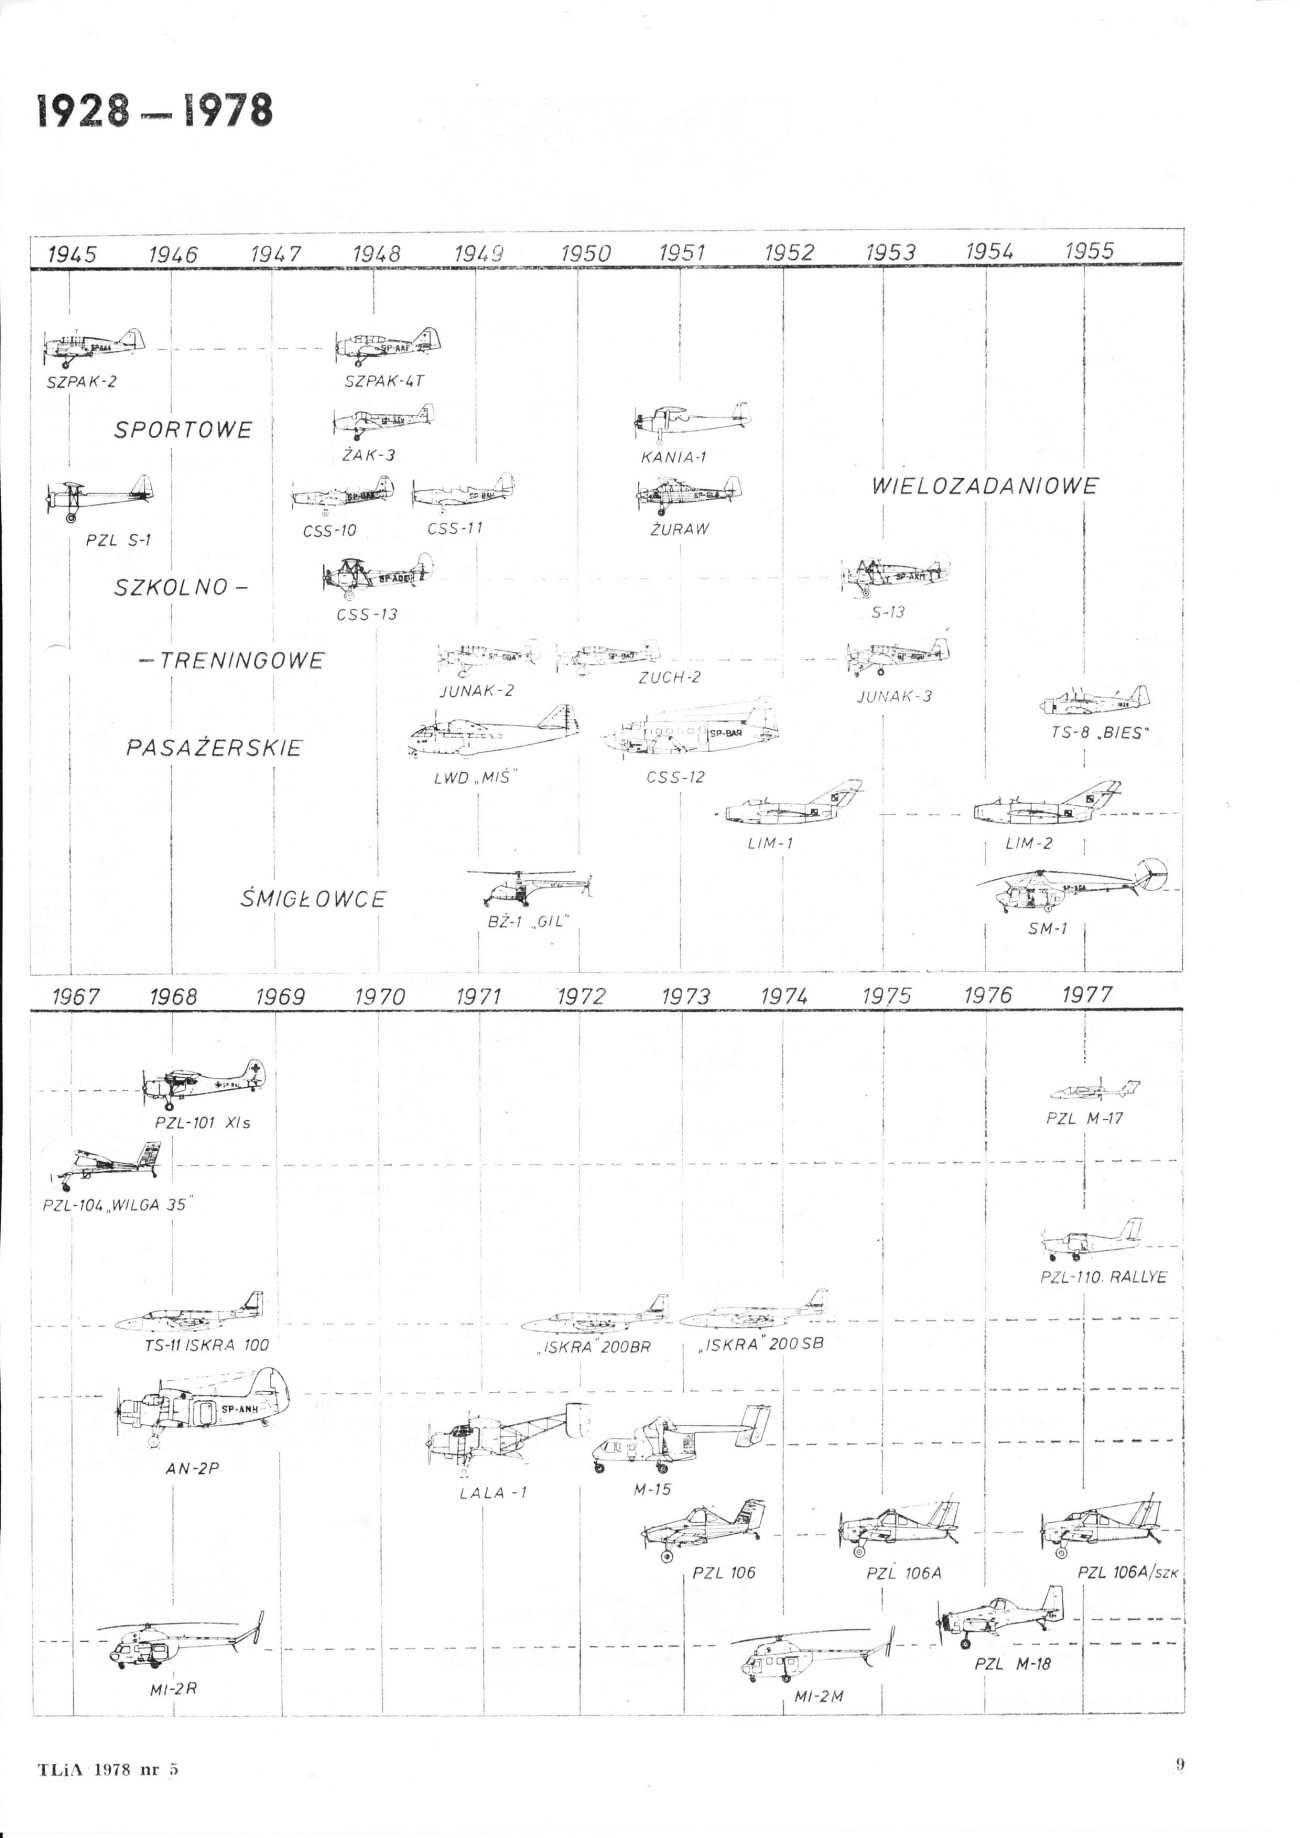 1928 — 1978
1945 1946 1947 1948 1949 1950 1951 1952 1953 1954 1955
SP-AAA
SP-AAF
SZPAK-2
SZPAK-4T
SPORTOWE
ŻAK-3
KANIA-1
WIELOZADANIOWE
CSS-10
CSS-11
ŻURAW
PZL S-1
SZKOLNO –
CSS-13
S-13
– TRENINGOWE
JUNAK-2
ZUCH-2
JUNAK-3
TS-8 „BIES"
PASAŻERSKIE
SP-BAR
LWD „MIŚ"
CSS-12
LIM-1
LIM-2
ŚMIGŁOWCE
BŻ-1 „GIL"
SM-1
1967 1968 1969 1970 1971 1972 1973 1974 1975 1976 1977
PZL-101 XIs
PZL M-17
PZL-104 „WILGA 35"
PZL-110. RALLYE
TS-11 ISKRA 100
„ISKRA" 200BR
„ISKRA" 200SB
SP-ANH
AN-2P
LALA -1
M-15
PZL 106
PZL 106A
PZL 106A/SZK
PZL M-18
MI-2R
MI-2M
TLiA 1978 nr 5
9